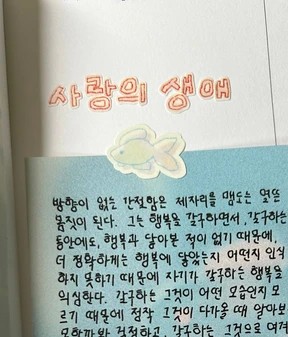 사랑의 생애
방향이 없는 간절함은 제자리를 맴도는 몸짓
움직이 된다. 그는 행복을 갈구하면서, 갈구하는
동안에도, 행복과 닮아본 적이 없기 때문에,
더 정확하게는 행복에 닿았는지 어떤지 인식
하지 못하기 때문에 자기가 갈구하는 행복을
의심한다. 갈구하는 그것이 어떤 모습인지 모
르기 때문에 정작 그것이 다가올 때 알아보
못할까봐 걱정하고, 갈구하는 그것으로 여겨